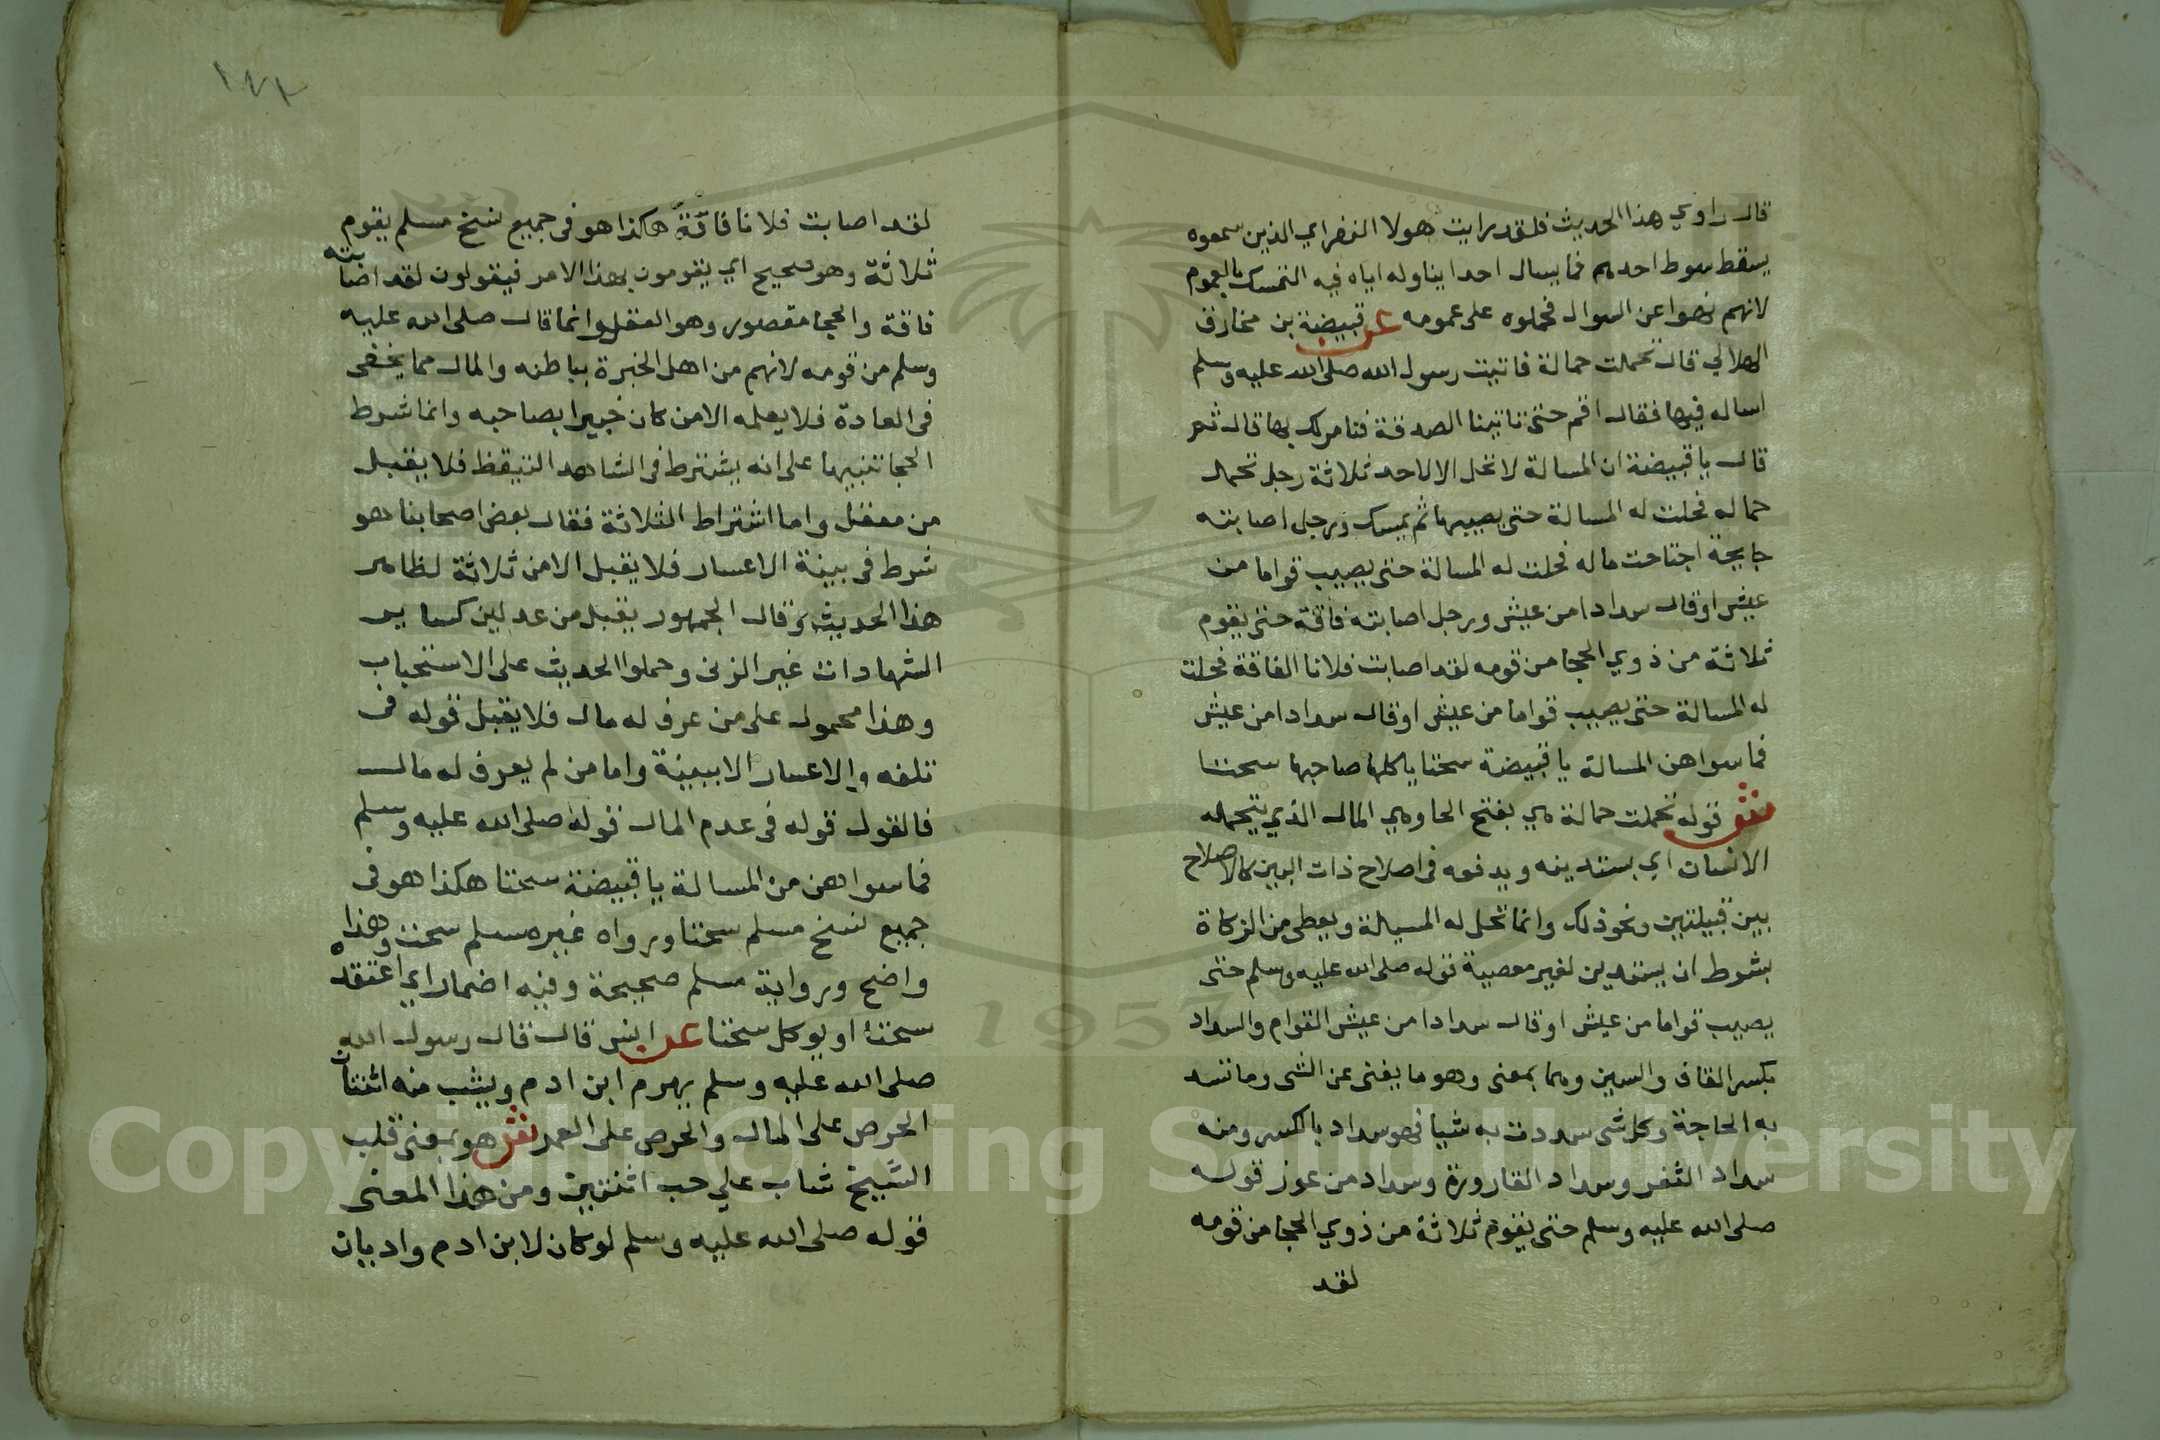 قال راوي هذا الحديث فلقد رايت هولا النفر اي الذين سمعوه
يسقط سوط احدهم فما يسال احدا يناوله اياه فيه التمسك بالعموم
لانهم نهوا عن السوال فحملوه على عمومه عن قبيضة بن مخارق
الهلالي قال تحملت حمالة فاتيت رسول الله صلى الله عليه وسلم
اساله فيها فقال اقم حتى تاتينا الصدقة فنامر لك بها قال ثم
قال يا قبيضة ان المسالة لا تحل الا لاحد ثلاثة رجل تحمل
حماله فحلت له المسالة حتى يصيبها ثم يمسك ورجل اصابته
جايحة اجتاحت ماله فحلت له المسالة حتى يصيب قواما من
عيش او قال سدادا من عيش ورجل اصابته فاقة حتى يقوم
ثلاثة من ذوي الحجا من قومه لقد اصابت فلانا الفاقة فحلت
له المسالة حتى يصيب قواما من عيش او قال سدادا من عيش
فما سواهن المسالة يا قبيضة سحتا ياكلها صاحبها سحتا
نقر قوله تحملت حمالة هي بفتح الحا وهي المال الذي يتحمله
الانسان اي يستدينه ويدفعه في اصلاح ذات البين كالاصلاح
بين قبيلتين ونحو ذلك وانما تحل له المسيالة ويعطى من الزكاة
بشرط ان يستدين لغير معصية قوله صلى الله عليه وسلم حتى
يصيب قواما من عيش او قال سدادا من عيش القوام والسداد
بكسر القاف والسين وهما بمعنى وهو ما يغنى عن الشى وما تسد
به الحاجة وكل شى سددت به شيا فهو سداد بالكسر ومنه
سداد الثغر وسداد القارورة وسداد من عوز قوله
صلى الله عليه وسلم حتى يقوم ثلاثة من ذوي الحجا من قومه
لقد
١٨٢
لقد اصابت فلانا فاقة هكذا هو فى جميع نسخ مسلم يقوم
ثلاثة وهو صحيح اي يقومون بهذا الامر فيقولون لقد اصابته
فاقة والحجا مقصور وهو العقل وانما قال صلى الله عليه
وسلم من قومه لانهم من اهل الخبرة بباطنه والمال مما يخفى
فى العادة فلا يعلمه الا من كان خبيرا بصاحبه وانما شرط
الحجا تنبيها على انه يشترط فى الشاهد التيقظ فلا يقبل
من مغفل واما اشتراط الثلاثة فقال بعض اصحابنا هو
شرط فى بينة الاعسار فلا يقبل الا من ثلاثة لظاهر
هذا الحديث وقال الجمهور يقبل من عدلين كساير
الشهادات غير الزنى وحملوا الحديث على الاستحباب
وهذا محمول على من عرف له مال فلا يقبل قوله فى
تلفه والاعسار الا ببينة واما من لم يعرف له مال
فالقول قوله فى عدم المال قوله صلى الله عليه وسلم
فما سواهن من المسالة يا قبيضة سحتا هكذا هو فى
جميع نسخ مسلم سحتا ورواه غير مسلم سحت وهذا
واضح ورواية مسلم صحيحة وفيه اضمار اي اعتقده
سحتا او يوكل سحتا عن انس قال قال رسول الله
صلى الله عليه وسلم يهرم ابن ادم ويشب منه اثنتان
الحرص على المال والحرص على العمر نقر هو بمعنى قلب
الشيخ شاب علي حب اثنتين ومن هذا المعنى
قوله صلى الله عليه وسلم لو كان لابن ادم واديان
Copyright © King Saud University
1957